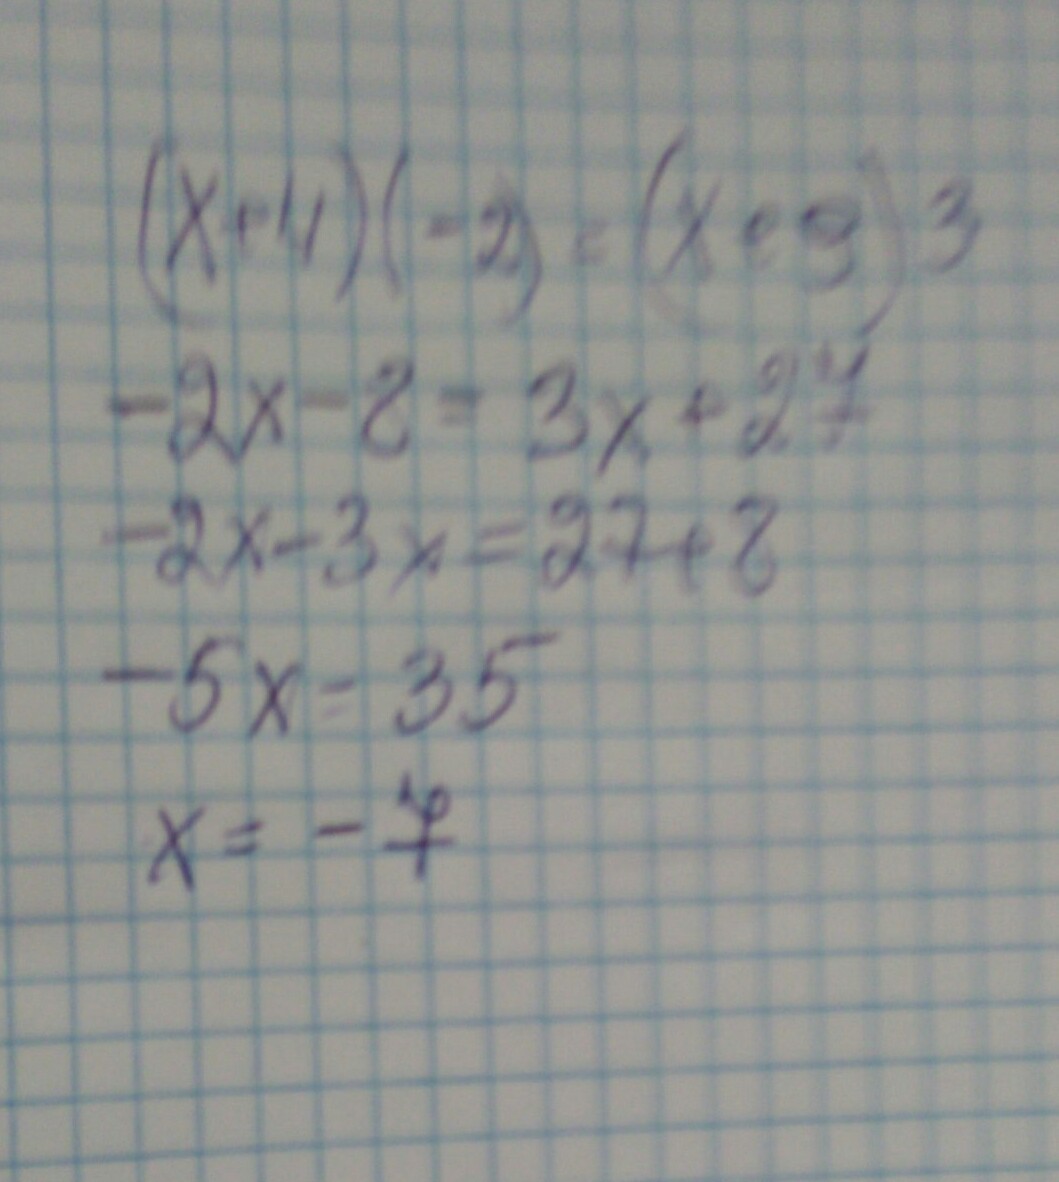 (x+4)(-2) = (x+9)3
-2x-8 = 3x+27
-2x-3x = 27+8
-5x = 35
x = -7